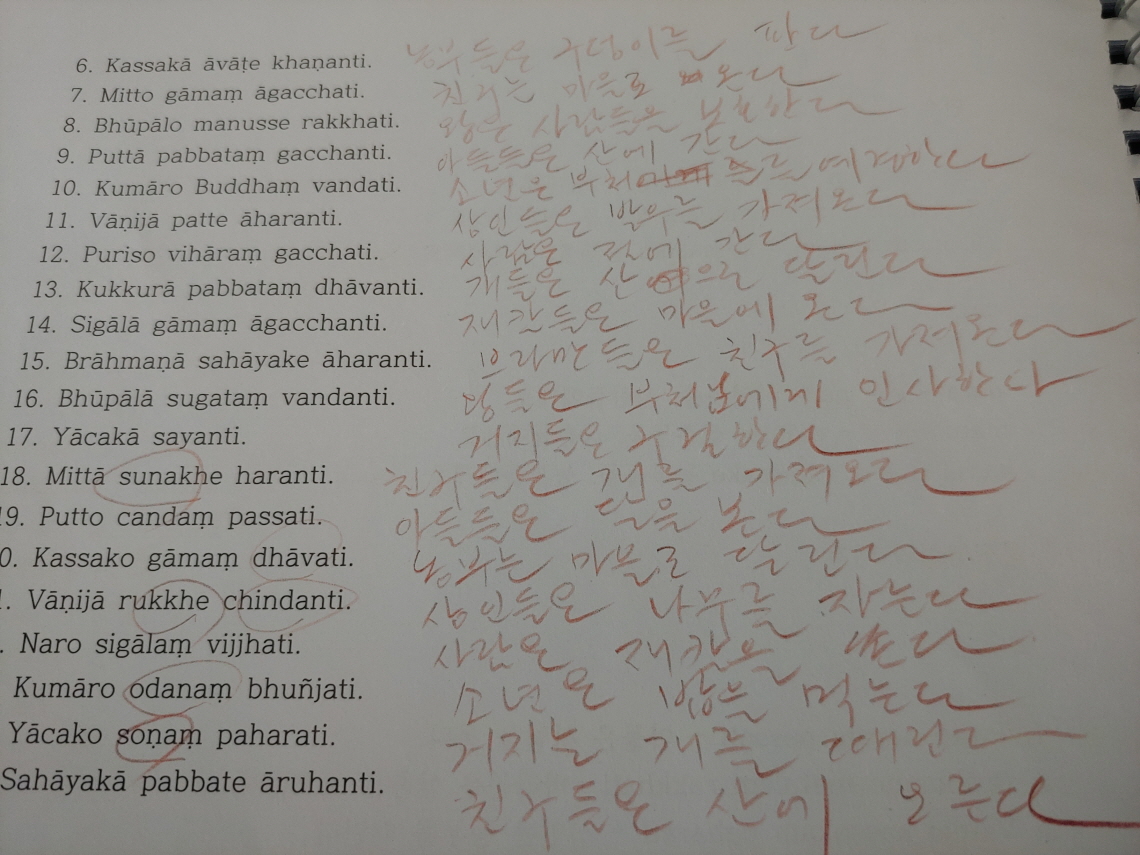 6. Kassakā āvāṭe khaṇanti. 농부들은 구덩이를 판다
7. Mitto gāmaṃ āgacchati. 친구는 마을로 온다
8. Bhūpālo manusse rakkhati. 왕은 사람들을 보호한다
9. Puttā pabbataṃ gacchanti. 아들들은 산에 간다
10. Kumāro Buddhaṃ vandati. 소년은 부처를 예경한다
11. Vāṇijā patte āharanti. 상인들은 발우를 가져온다
12. Puriso vihāraṃ gacchati. 사람은 절에 간다
13. Kukkurā pabbataṃ dhāvanti. 개들은 산으로 달린다
14. Sigālā gāmaṃ āgacchanti. 재칼들은 마을에 온다
15. Brāhmaṇā sahāyake āharanti. 브라만들은 친구를 가져온다
16. Bhūpālā sugataṃ vandanti. 왕들은 부처님에게 인사한다
17. Yācakā sayanti. 거지들은 구걸한다
18. Mittā sunakhe haranti. 친구들은 개를 가져온다
19. Putto candaṃ passati. 아들들은 달을 본다
0. Kassako gāmaṃ dhāvati. 농부는 마을로 달린다
1. Vāṇijā rukkhe chindanti. 상인들은 나무를 자른다
. Naro sigālaṃ vijjhati. 사람은 재칼을 쏜다
Kumāro odanaṃ bhuñjati. 소년은 밥을 먹는다
Yācako soṇaṃ paharati. 거지는 개를 때린다
Sahāyakā pabbate āruhanti. 친구들은 산에 오른다